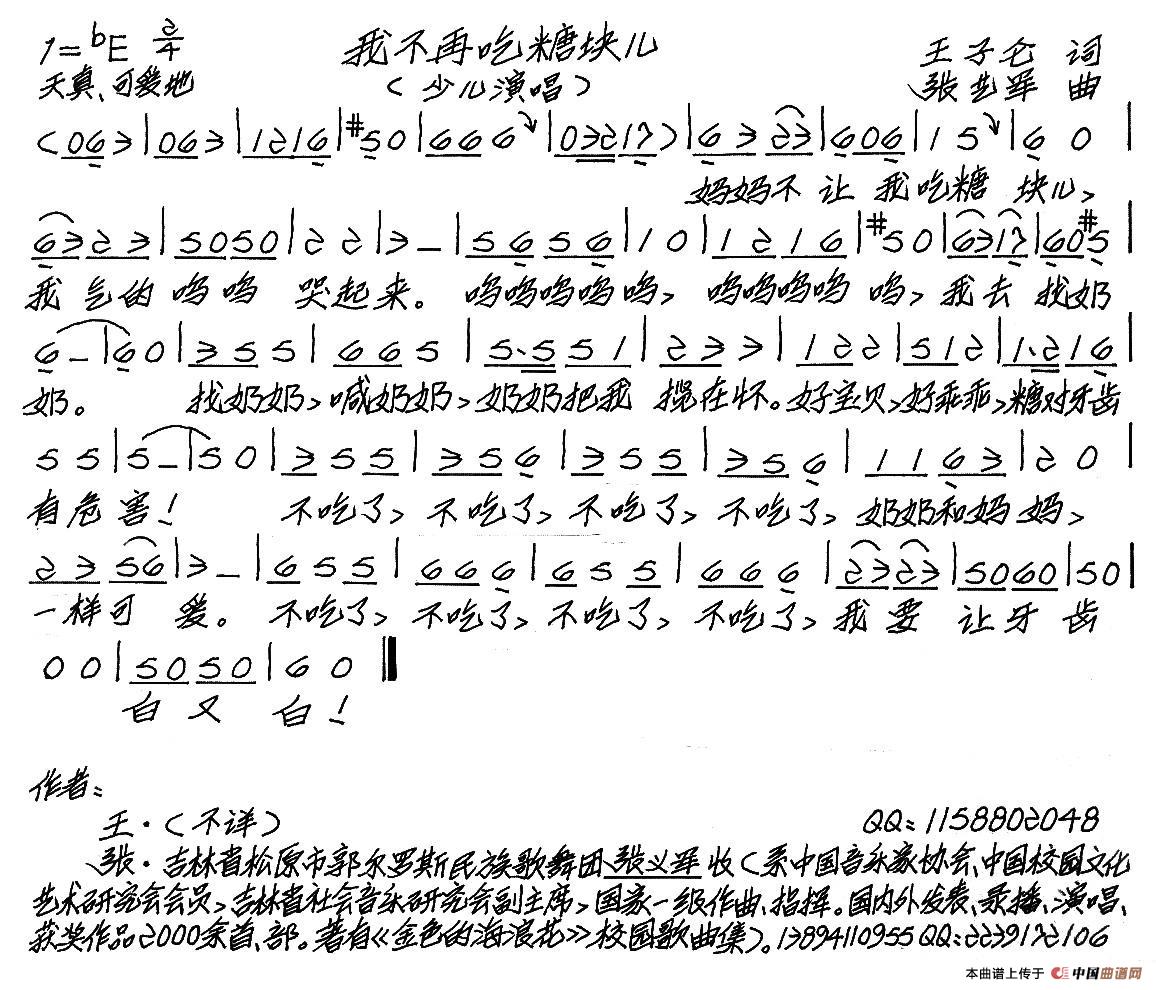 1=♭E 2/4 我不再吃糖块儿 王子仑 词
天真、可爱地 (少儿演唱) 张艺军 曲
(063|063|1216|#50|666|03217)|6323|606|15|60|
妈妈不让我吃糖块儿,
6323|5050|22|3-|5656|10|1216|#50|6317|60#5|
我气的呜呜哭起来。呜呜呜呜呜,呜呜呜呜呜,我去找奶
6-|60|355|665|5·551|233|122|512|1·216|
奶。找奶奶,喊奶奶,奶奶把我搅在怀。好宝贝,好乖乖,糖对牙齿
55|5-|50|355|356|355|356|1163|20|
有危害!不吃了,不吃了,不吃了,不吃了,奶奶和妈妈,
2356|3-|655|666|655|666|2323|5060|50|
一样可爱。不吃了,不吃了,不吃了,不吃了,我要让牙齿
00|5050|60‖
白又白!
作者:
王·(不详) QQ:1158802048
张·吉林省松原市郭尔罗斯民族歌舞团张义军收(系中国音乐家协会、中国校园文化
艺术研究会会员,吉林省社会音乐研究会副主席,国家一级作曲、指挥。国内外发表、录播、演唱、
获奖作品2000余首、部。著有《金色的海浪花》校园歌曲集)。13894110955 QQ:2239172106
本曲谱上传于 中国曲谱网